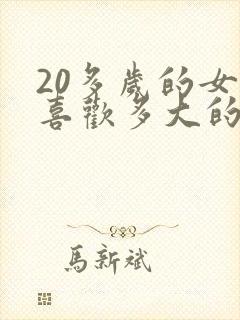 20多歲的女
喜歡多大的
馬新斌